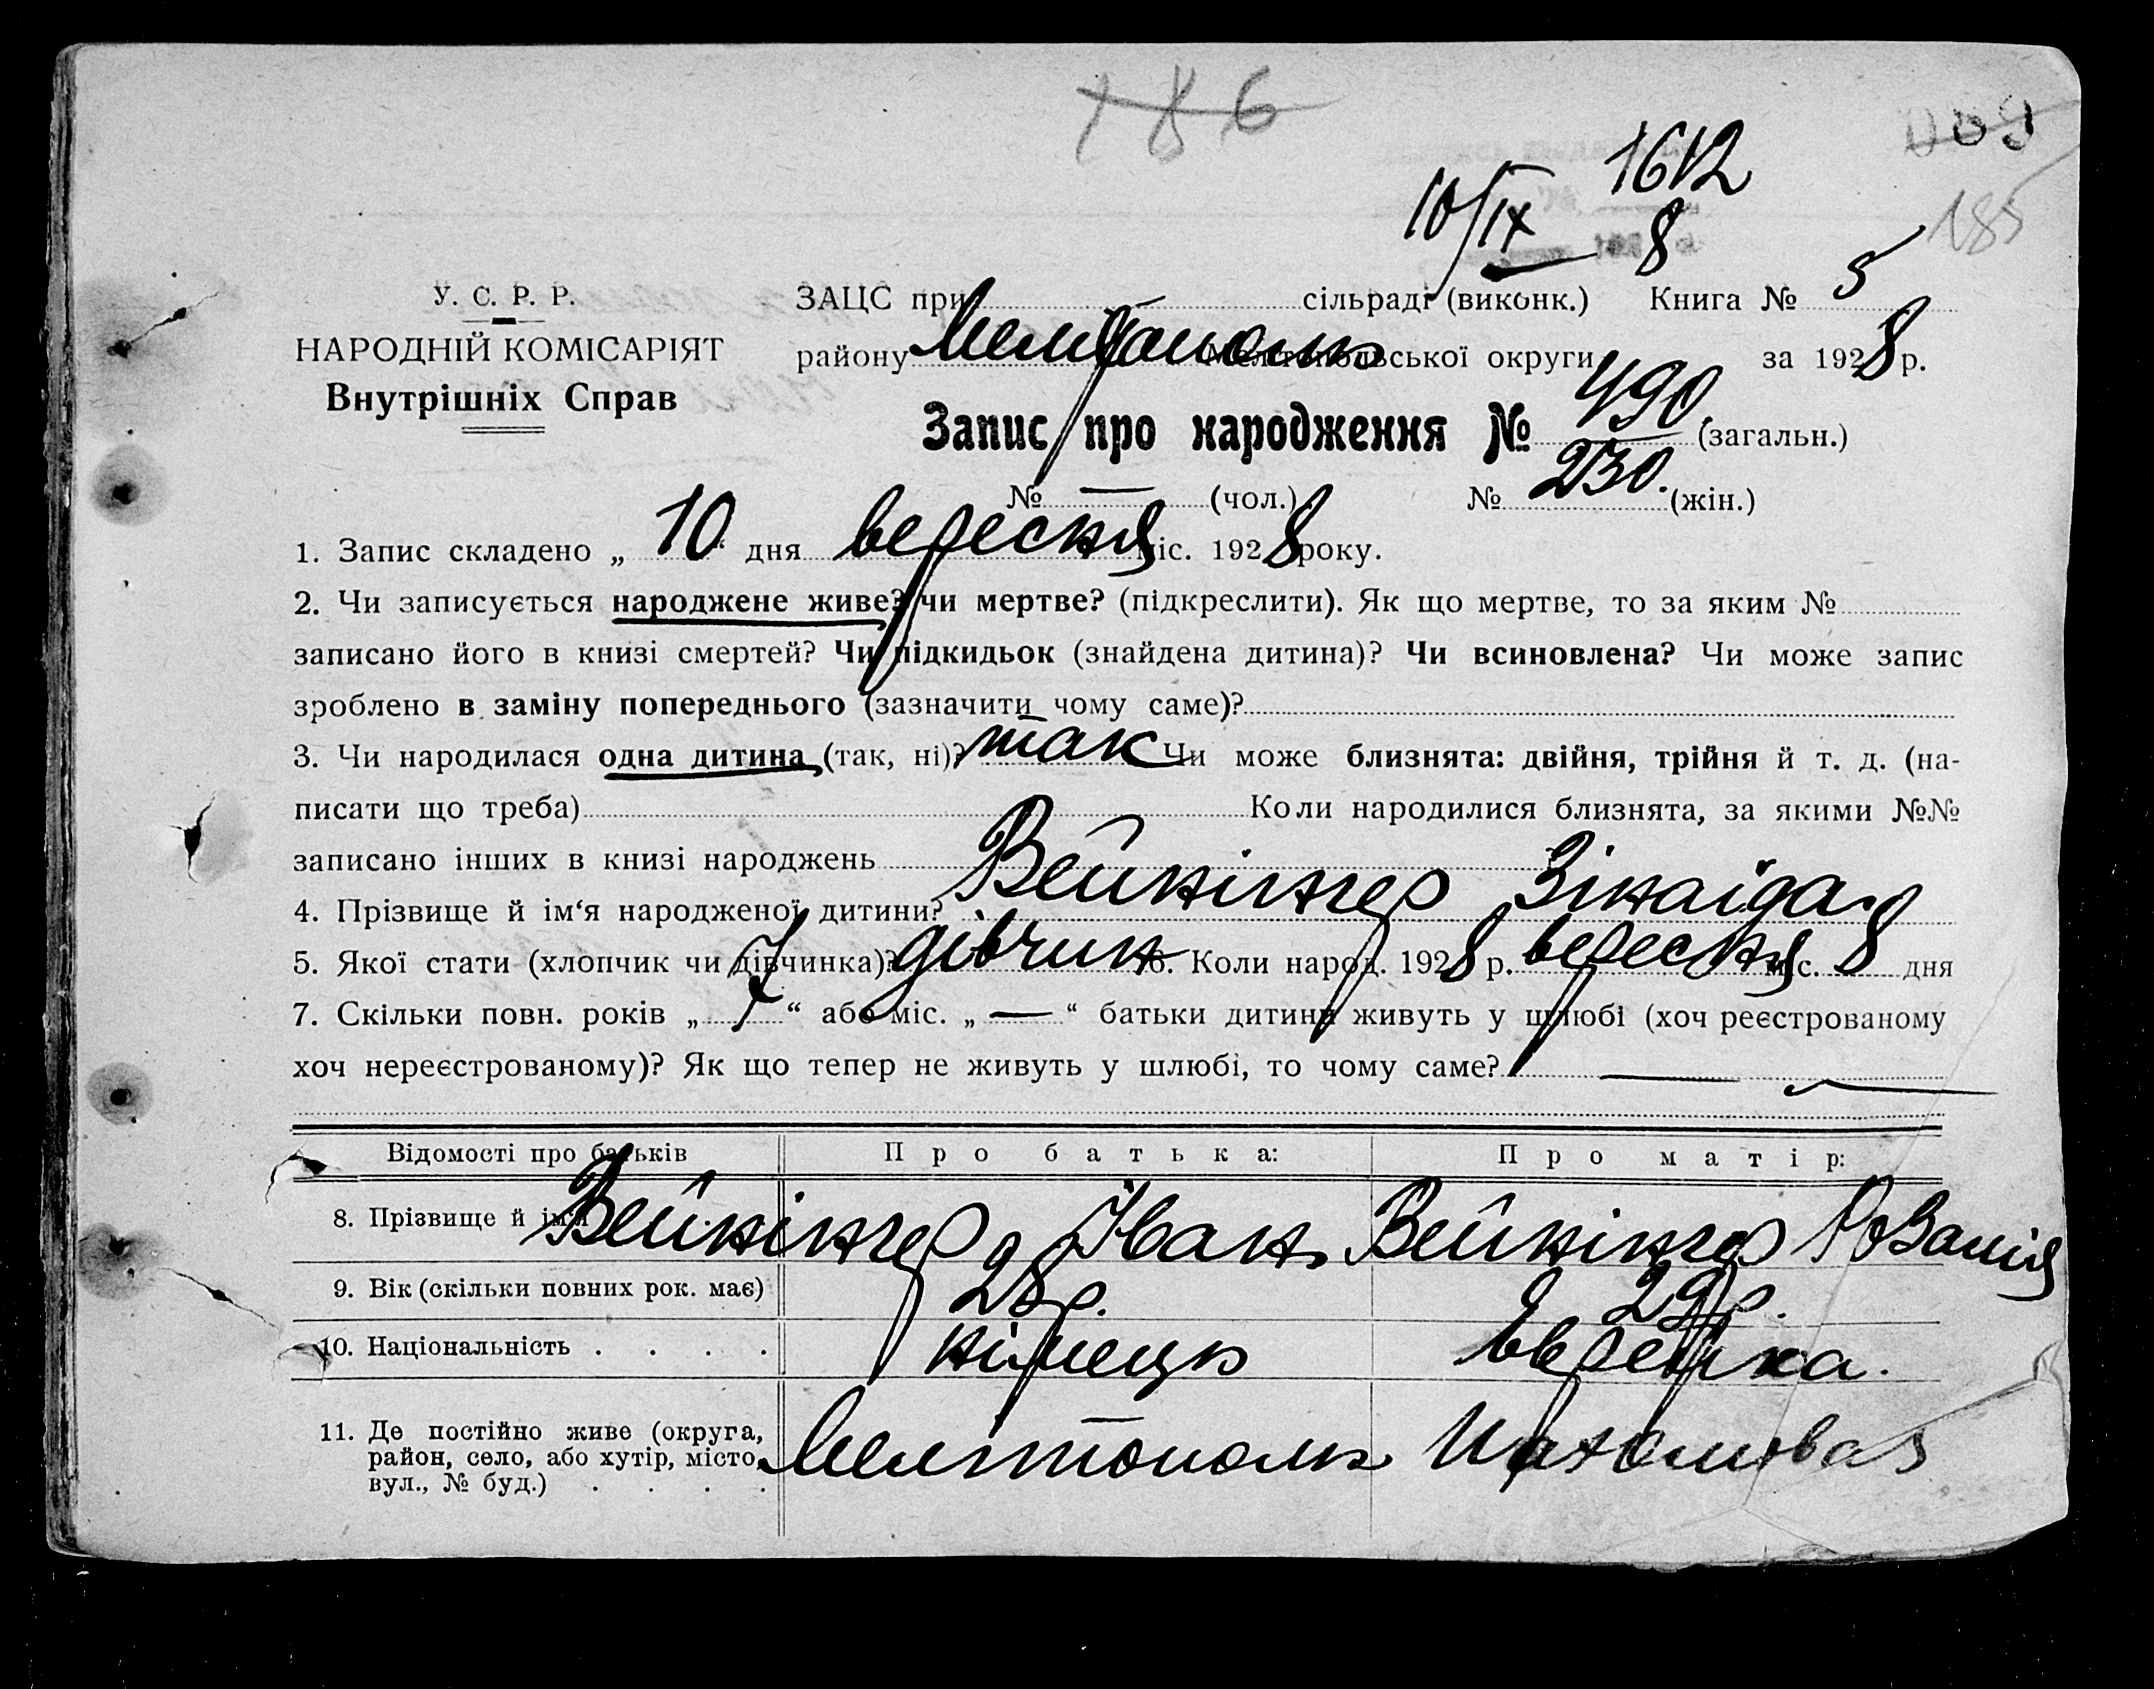 186
009
1612
10/IX 8
185
У. С. Р. Р.
НАРОДНІЙ КОМІСАРІЯТ
Внутрішніх Справ
ЗАЦС при сільраді (виконк.) Книга № 5
району Мелітополь Мелітопольської округи за 1928 р.
Запис про народження № 490 (загальн.)
№ — (чол.) № 230. (жін.)
1. Запис складено „ 10 “ дня вересня міс. 1928 року.
2. Чи записується народжене живе? чи мертве? (підкреслити). Як що мертве, то за яким №
записано його в книзі смертей? Чи підкидьок (знайдена дитина)? Чи всиновлена? Чи може запис
зроблено в заміну попереднього (зазначити чому саме)?
3. Чи народилася одна дитина (так, ні)? так Чи може близнята: двійня, трійня й т. д. (на-
писати що треба) Коли народилися близнята, за якими №№
записано інших в книзі народжень
4. Прізвище й ім‘я народженої дитини? Вейнінгер Зінаіда
5. Якої стати (хлопчик чи дівчинка)? дівчин 6. Коли народ. 1928 р. вересня міс. 8 дня
7. Скільки повн. років „ 7 “ або міс. „ — “ батьки дитини живуть у шлюбі (хоч реєстрованому
хоч нереєстрованому)? Як що тепер не живуть у шлюбі, то чому саме? —
Відомості про батьків Про батька: Про матір:
8. Прізвище й ім‘я Вейнінгер Іван Вейнінгер Розалія
9. Вік (скільки повних рок. має) 28 р. 29 р.
10. Національність . . . . німець євре́йка.
11. Де постійно живе (округа,
район, село, або хутір, місто, Мелітополь
вул., № буд.) . . . .